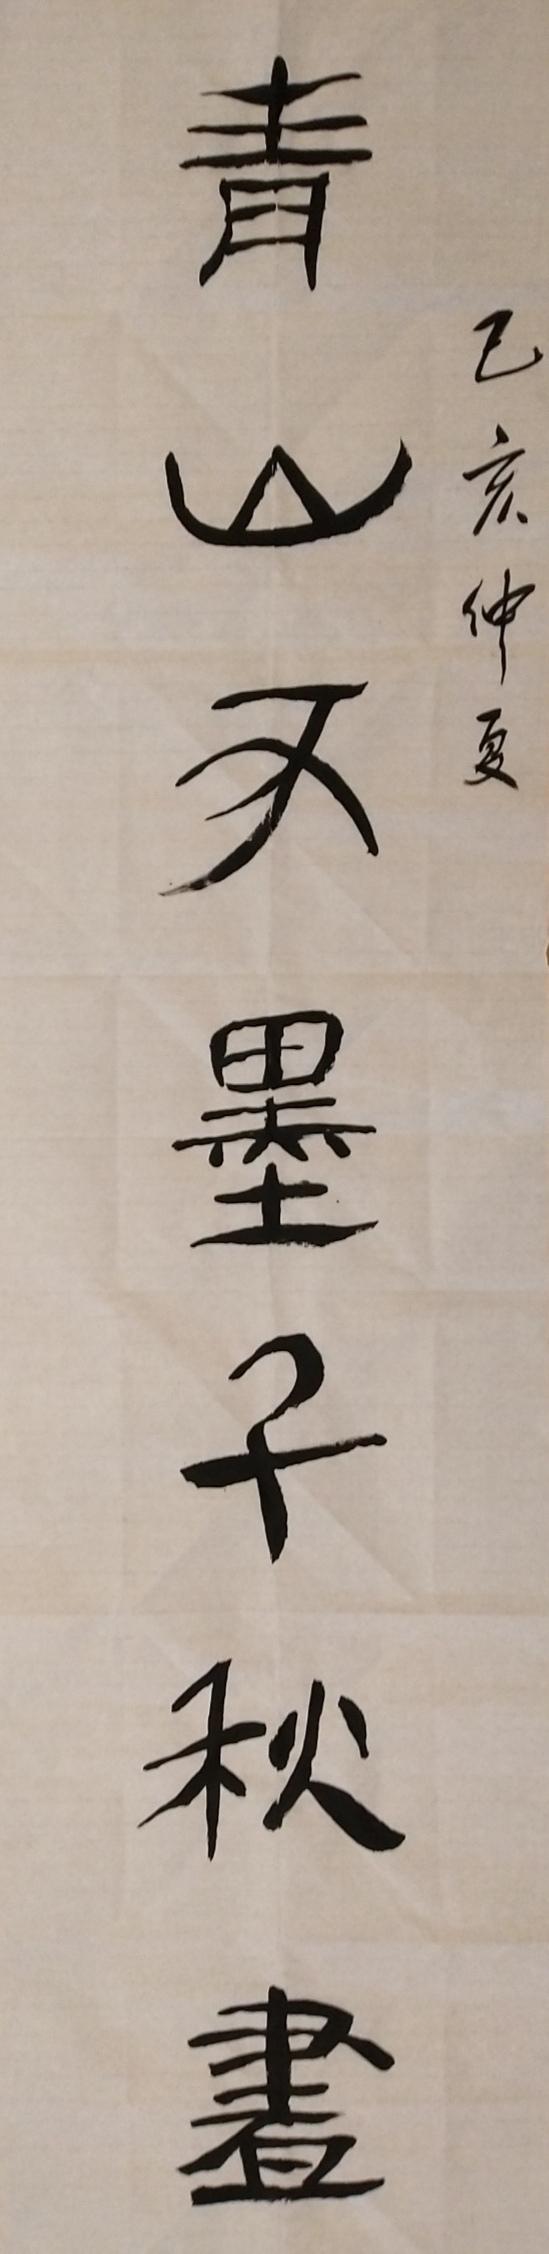 己亥仲夏
青山不墨千秋畫